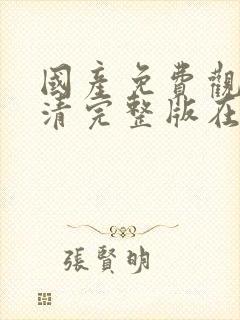 國產免費觀
清完整版在
張賢明